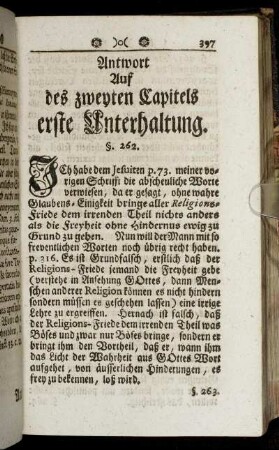 397
Antwort
Auf
des zweyten Capitels
erste Unterhaltung.
§. 262.
Ich habe dem Jesuiten p.73. meiner vo-
rigen Schrifft die abscheuliche Worte
verwiesen, da er gesagt, ohne wahre
Glaubens-Einigkeit bringe aller Religions-
Friede dem irrenden Theil nichts anders
als die Freyheit ohne Hindernus ewig zu
Grund zu gehen. Nun will der Mann mit so
freventlichen Worten noch übrig recht haben.
p. 316. Es ist Grundfalsch, erstlich daß der
Religions-Friede jemand die Freyheit gebe
(verstehe in Ansehung GOttes, dann Men-
schen anderer Religion können es nicht hindern
sondern müssen es geschehen lassen) eine irrige
Lehre zu ergreiffen. Hernach ist falsch, daß
der Religions-Friede dem irrenden Theil was
Böses und zwar nur Böses bringe, sondern er
bringt ihm den Vortheil, daß er, wann ihm
das Licht der Wahrheit aus GOttes Wort
aufgehet, von äusserlichen Hinderungen, es
frey zu bekennen, loß wird.
§. 263.